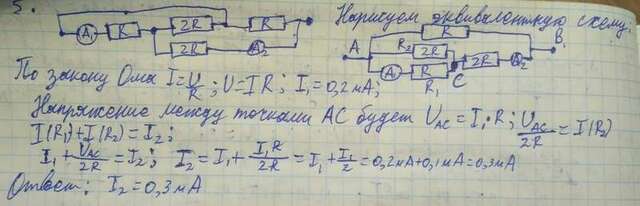 5.
A₁ R 2R R
2R A₂
Нарисуем эквивалентную схему.
R B
A R₂ 2R 2R A₂
A₁ R C
R₁
По закону Ома I = U/R; U = IR; I₁ = 0,2 мА;
Напряжение между точками AC будет U_AC = I₁·R; U_AC/2R = I(R₂)
I(R₁) + I(R₂) = I₂;
I₁ + U_AC/2R = I₂; I₂ = I₁ + I₁R/2R = I₁ + I₁/2 = 0,2мА + 0,1мА = 0,3мА
Ответ: I₂ = 0,3 мА